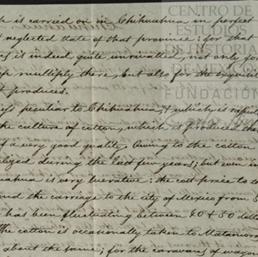 CENTRO DE
ch is carried on in Chihuahua in perfect
ESTUDIOS
neglected state of that province; for that
DE HISTORIA
ing is indeed quite unrivalled, not only for
fe multiply there, but also for the
t produces.
FUNDACIÓN
peculiar to Chihuahua; which is
the culture of cotton, which is produced there
of a very good quality. Owing to the cotton
during the last few years; but even
is very lucrative: the cost price to
and the carriage to the city of Mexico from
has been fluctuating between 40 & 50
The cotton is occasionally taken to Matamoros
about the same; for the caravans of waggons